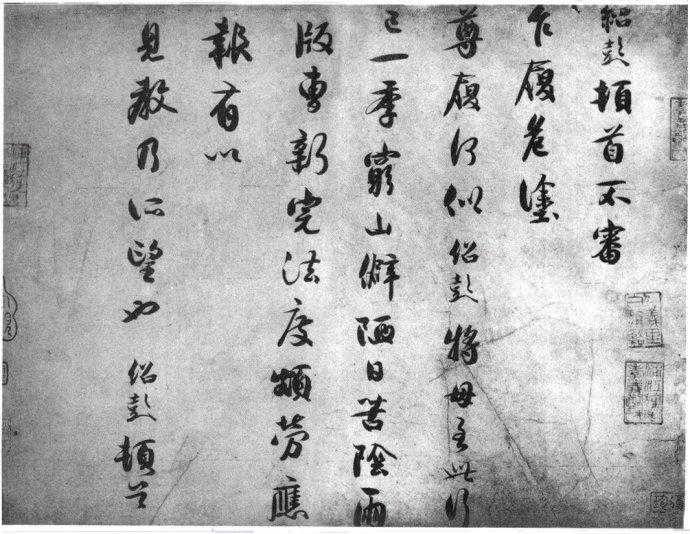 紹彭頓首不審
乍履危塗
尊履何似紹彭將母至此行
已一季窮山僻陋日苦陰雨
版曹新完法度頗勞應
報有以
見教乃所望也紹彭頓首